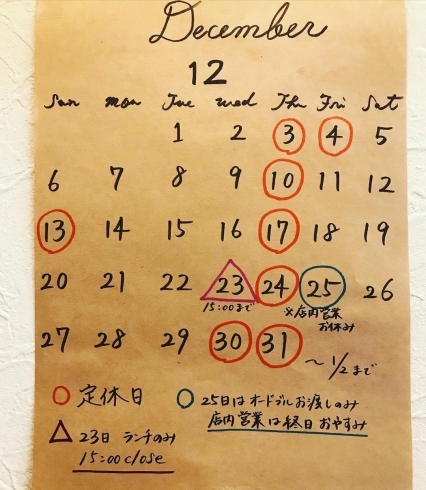 December
12
Sun mon Tue wed Thu Fri Sat
1 2 3 4 5
6 7 8 9 10 11 12
13 14 15 16 17 18 19
20 21 22 23 24 25 26
15:00まで ※店内営業
お休み
27 28 29 30 31
〜1/2まで
○定休日 ○25日はオードブルお渡しのみ
店内営業は終日おやすみ
△23日 ランチのみ
15:00close